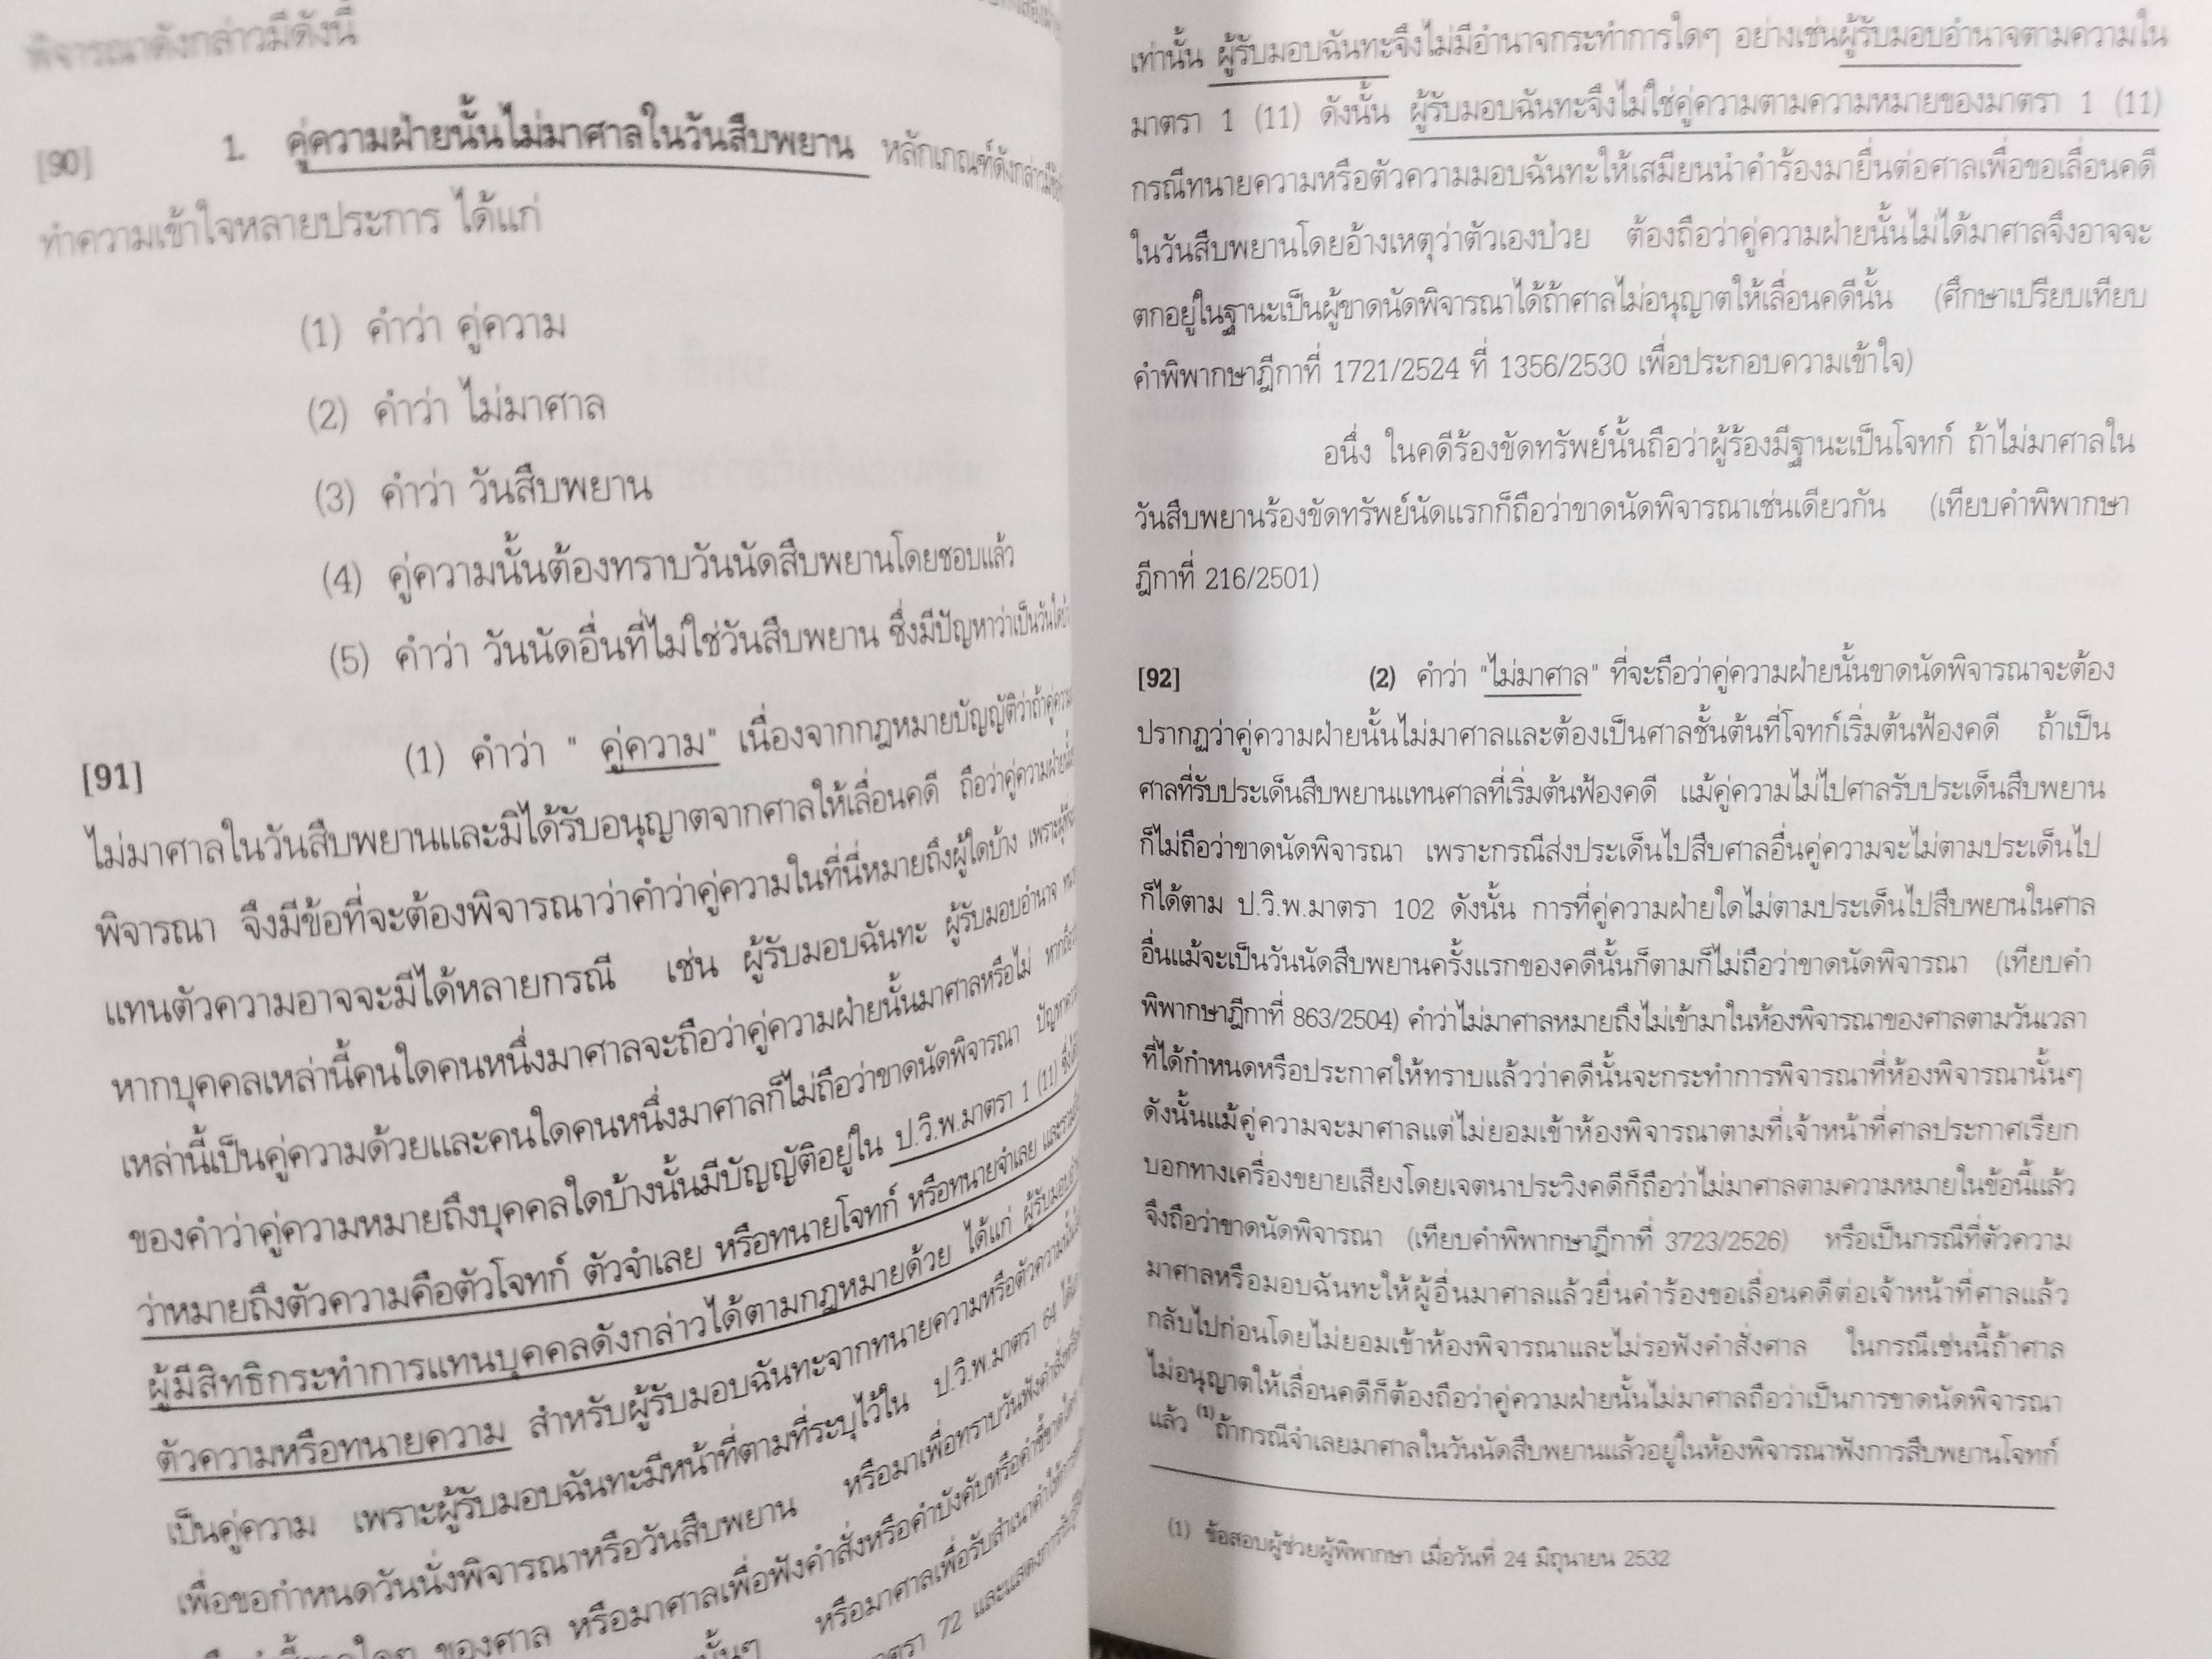 พิจารณาดังกล่าวมีดังนี้
[90] 1. คู่ความฝ่ายนั้นไม่มาศาลในวันสืบพยาน หลักเกณฑ์ดังกล่าวมี
ทำความเข้าใจหลายประการ ได้แก่
(1) คำว่า คู่ความ
(2) คำว่า ไม่มาศาล
(3) คำว่า วันสืบพยาน
(4) คู่ความนั้นต้องทราบวันนัดสืบพยานโดยชอบแล้ว
(5) คำว่า วันนัดอื่นที่ไม่ใช่วันสืบพยาน ซึ่งมีปัญหาว่าเป็นวันใด
[91] (1) คำว่า " คู่ความ" เนื่องจากกฎหมายบัญญัติว่าถ้าคู่ความ
ไม่มาศาลในวันสืบพยานและมิได้รับอนุญาตจากศาลให้เลื่อนคดี ถือว่าคู่ความฝ่ายนั้น
พิจารณา จึงมีข้อที่จะต้องพิจารณาว่าคำว่าคู่ความในที่นี่หมายถึงผู้ใดบ้าง
แทนตัวความอาจจะมีได้หลายกรณี เช่น ผู้รับมอบฉันทะ ผู้รับมอบอำนาจ
หากบุคคลเหล่านี้คนใดคนหนึ่งมาศาลจะถือว่าคู่ความฝ่ายนั้นมาศาลหรือไม่
เหล่านี้เป็นคู่ความด้วยและคนใดคนหนึ่งมาศาลก็ไม่ถือว่าขาดนัดพิจารณา
ของคำว่าคู่ความหมายถึงบุคคลใดบ้างนั้นมีบัญญัติอยู่ใน ป.วิ.พ.มาตรา 1 (11)
ว่าหมายถึงตัวความคือตัวโจทก์ ตัวจำเลย หรือทนายโจทก์ หรือทนายจำเลย
ผู้มีสิทธิกระทำการแทนบุคคลดังกล่าวได้ตามกฎหมายด้วย ได้แก่
ตัวความหรือทนายความ สำหรับผู้รับมอบฉันทะจากทนายความหรือตัวความ
เป็นคู่ความ เพราะผู้รับมอบฉันทะมีหน้าที่ตามที่ระบุไว้ใน ป.วิ.พ.มาตรา 64
เพื่อขอกำหนดวันนั่งพิจารณาหรือวันสืบพยาน หรือมาเพื่อทราบวันฟังคำสั่ง
ของศาล หรือมาศาลเพื่อฟังคำสั่งหรือคำบังคับหรือคำชี้ขาด
หรือมาศาลเพื่อรับสำเนา
72 และแสดงการ
เท่านั้น ผู้รับมอบฉันทะจึงไม่มีอำนาจกระทำการใดๆ อย่างเช่นผู้รับมอบอำนาจตามความใน
มาตรา 1 (11) ดังนั้น ผู้รับมอบฉันทะจึงไม่ใช่คู่ความตามความหมายของมาตรา 1 (11)
กรณีทนายความหรือตัวความมอบฉันทะให้เสมียนนำคำร้องมายื่นต่อศาลเพื่อขอเลื่อนคดี
ในวันสืบพยานโดยอ้างเหตุว่าตัวเองป่วย ต้องถือว่าคู่ความฝ่ายนั้นไม่ได้มาศาลจึงอาจจะ
ตกอยู่ในฐานะเป็นผู้ขาดนัดพิจารณาได้ถ้าศาลไม่อนุญาตให้เลื่อนคดีนั้น (ศึกษาเปรียบเทียบ
คำพิพากษาฎีกาที่ 1721/2524 ที่ 1356/2530 เพื่อประกอบความเข้าใจ)
อนึ่ง ในคดีร้องขัดทรัพย์นั้นถือว่าผู้ร้องมีฐานะเป็นโจทก์ ถ้าไม่มาศาลใน
วันสืบพยานร้องขัดทรัพย์นัดแรกก็ถือว่าขาดนัดพิจารณาเช่นเดียวกัน (เทียบคำพิพากษา
ฎีกาที่ 216/2501)
[92] (2) คำว่า "ไม่มาศาล" ที่จะถือว่าคู่ความฝ่ายนั้นขาดนัดพิจารณาจะต้อง
ปรากฏว่าคู่ความฝ่ายนั้นไม่มาศาลและต้องเป็นศาลชั้นต้นที่โจทก์เริ่มต้นฟ้องคดี ถ้าเป็น
ศาลที่รับประเด็นสืบพยานแทนศาลที่เริ่มต้นฟ้องคดี แม้คู่ความไม่ไปศาลรับประเด็นสืบพยาน
ก็ไม่ถือว่าขาดนัดพิจารณา เพราะกรณีส่งประเด็นไปสืบศาลอื่นคู่ความจะไม่ตามประเด็นไป
ก็ได้ตาม ป.วิ.พ.มาตรา 102 ดังนั้น การที่คู่ความฝ่ายใดไม่ตามประเด็นไปสืบพยานในศาล
อื่นแม้จะเป็นวันนัดสืบพยานครั้งแรกของคดีนั้นก็ตามก็ไม่ถือว่าขาดนัดพิจารณา (เทียบคำ
พิพากษาฎีกาที่ 863/2504) คำว่าไม่มาศาลหมายถึงไม่เข้ามาในห้องพิจารณาของศาลตามวันเวลา
ที่ได้กำหนดหรือประกาศให้ทราบแล้วว่าคดีนั้นจะกระทำการพิจารณาที่ห้องพิจารณานั้นๆ
ดังนั้นแม้คู่ความจะมาศาลแต่ไม่ยอมเข้าห้องพิจารณาตามที่เจ้าหน้าที่ศาลประกาศเรียก
บอกทางเครื่องขยายเสียงโดยเจตนาประวิงคดีก็ถือว่าไม่มาศาลตามความหมายในข้อนี้แล้ว
จึงถือว่าขาดนัดพิจารณา (เทียบคำพิพากษาฎีกาที่ 3723/2526) หรือเป็นกรณีที่ตัวความ
มาศาลหรือมอบฉันทะให้ผู้อื่นมาศาลแล้วยื่นคำร้องขอเลื่อนคดีต่อเจ้าหน้าที่ศาลแล้ว
กลับไปก่อนโดยไม่ยอมเข้าห้องพิจารณาและไม่รอฟังคำสั่งศาล ในกรณีเช่นนี้ถ้าศาล
ไม่อนุญาตให้เลื่อนคดีก็ต้องถือว่าคู่ความฝ่ายนั้นไม่มาศาลถือว่าเป็นการขาดนัดพิจารณา
แล้ว (1)ถ้ากรณีจำเลยมาศาลในวันนัดสืบพยานแล้วอยู่ในห้องพิจารณาฟังการสืบพยานโจทก์
(1) ข้อสอบผู้ช่วยผู้พิพากษา เมื่อวันที่ 24 มิถุนายน 2532